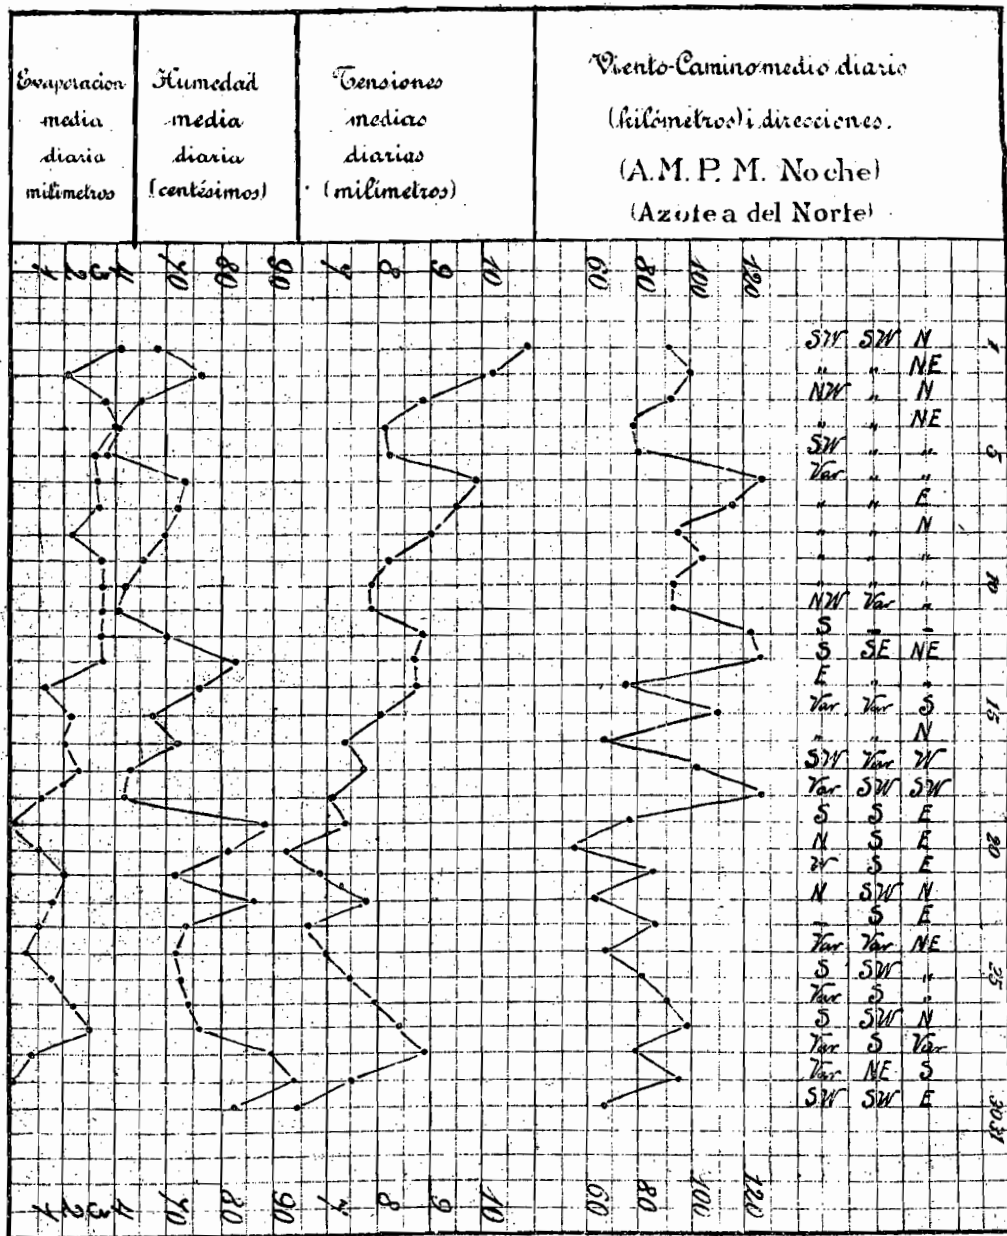 Evaporacion
media
diaria
milimetros
Humedad
media
diaria
(centésimos)
Tensiones
medias
diarias
(milimetros)
Viento-Camino medio diario
(kilómetros) i direcciones.
(A.M. P. M. Noche)
(Azotea del Norte)
1 2 3 4 70 80 90 7 8 9 10 60 80 100 120
SW SW N 1
" " NE
NW " N
" " NE
SW " " 5
Var " "
" " E
" " N
" " "
" " " 10
NW Var "
S " "
S SE NE
E " "
Var Var S 15
" " N
SW Var W
Var SW SW
S S E
N S E 20
W S E
N SW N
" S E
Var Var NE
S SW " 25
Var S "
S SW N
Var S Var
Var NE S
SW SW E 30
31
1 2 3 4 70 80 90 7 8 9 10 60 80 100 120